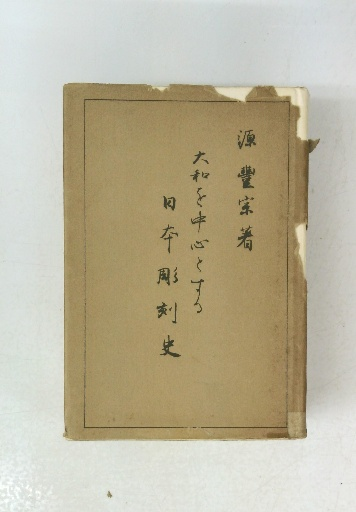 源豐宗著
大和を中心とする
日本彫刻史